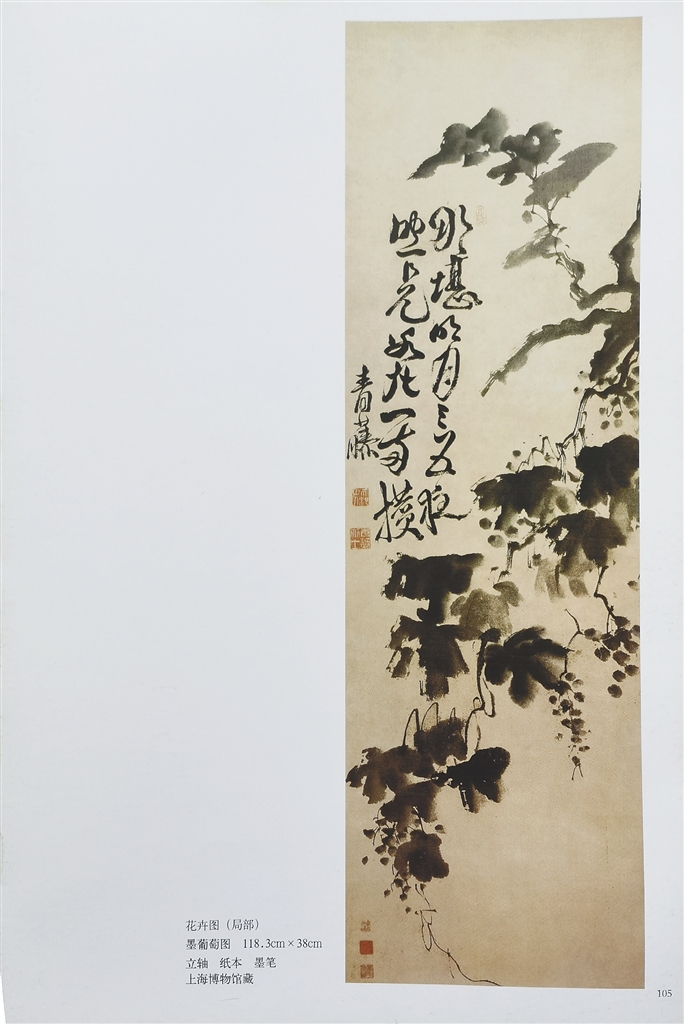 那堪明月三五夜
照见
一番摸
青藤
花卉图（局部）
墨葡萄图　118.3cm×38cm
立轴　纸本　墨笔
上海博物馆藏
105